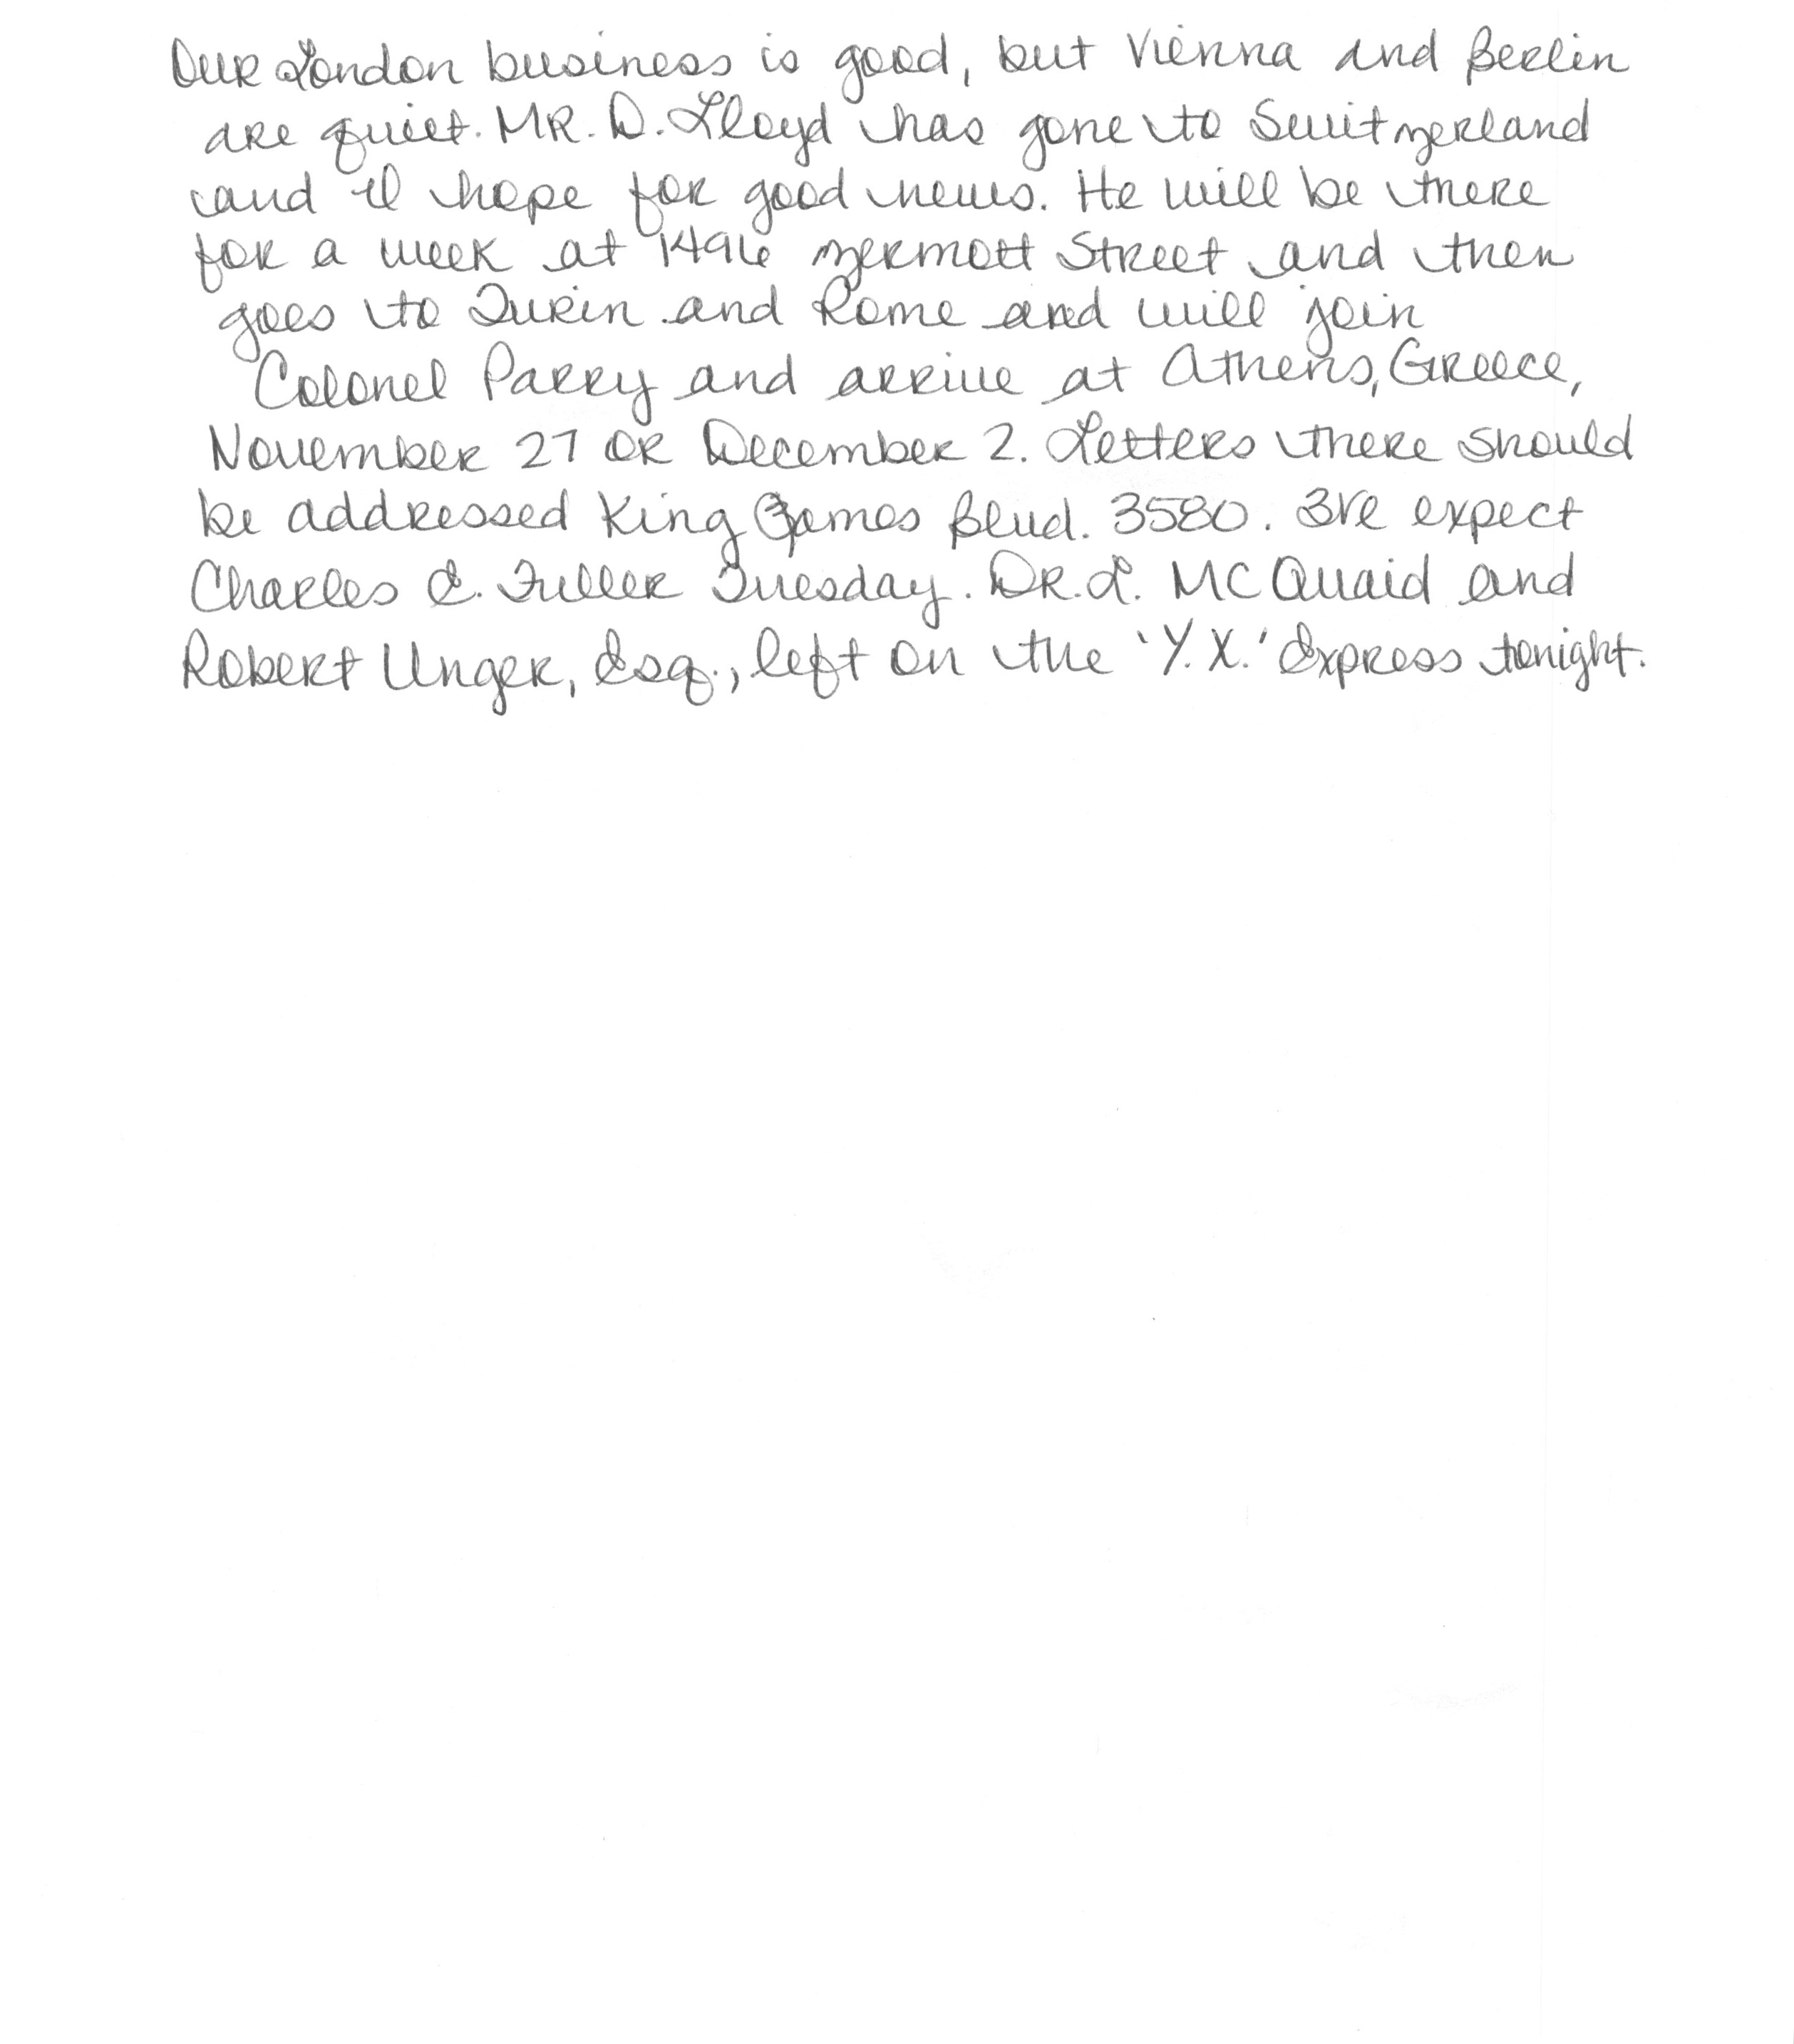 Our London business is good, but Vienna and Berlin
are quiet. Mr. D. Lloyd has gone to Switzerland
and I hope for good news. He will be there
for a week at 1496 Zermott Street and then
goes to Turin and Rome and will join
Colonel Parry and arrive at Athens, Greece,
November 27 or December 2. Letters there should
be addressed King James Blvd. 3580. We expect
Charles E. Fuller Tuesday. Dr. L. McQuaid and
Robert Unger, Esq., left on the 'Y.X.' Express tonight.